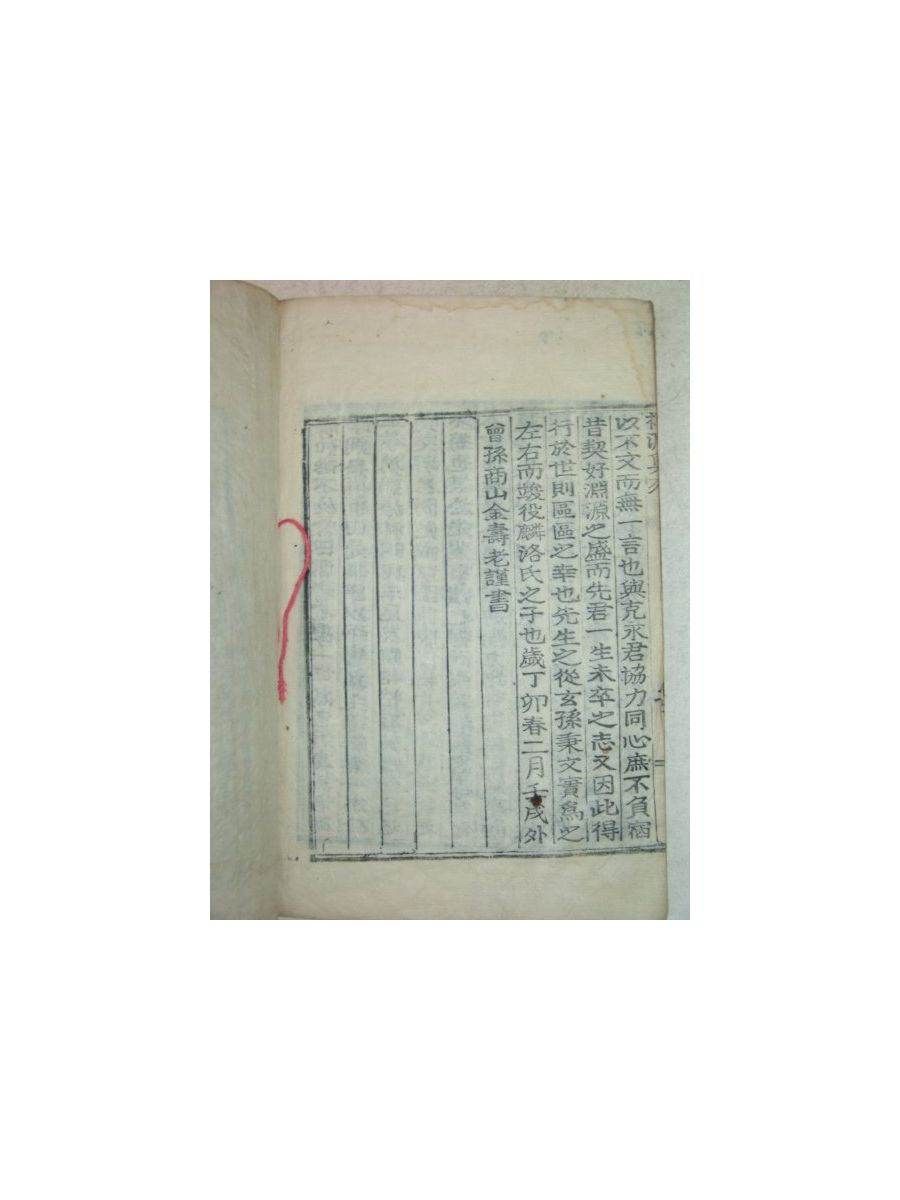 以不文而無一言也與克永君協力同心庶不負宿
昔契好淵源之盛而先君一生未卒之志又因此得
行於世則區區之幸也先生之從玄孫秉文實爲之
左右而竣役麟洛氏之子也歲丁卯春二月壬戌外
曾孫商山金壽老謹書